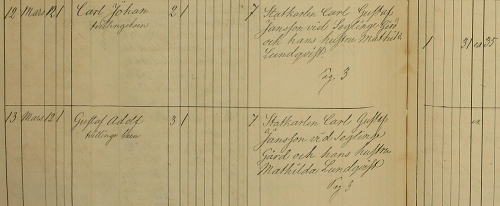 12 Mars 12 1 Carl Johan 2 1 7 Statkarlen Carl Gustaf
Jansson vid Soglinge Gård
och hans hustru Mathilda
Lundqvist. 1 31 35
Pag. 3
13 Mars 12 1 Gustaf Adolf 3 1 7 Statkarlen Carl Gustaf
Jansson vid Soglinge
Gård och hans hustru
Mathilda Lundqvist
Pag 3